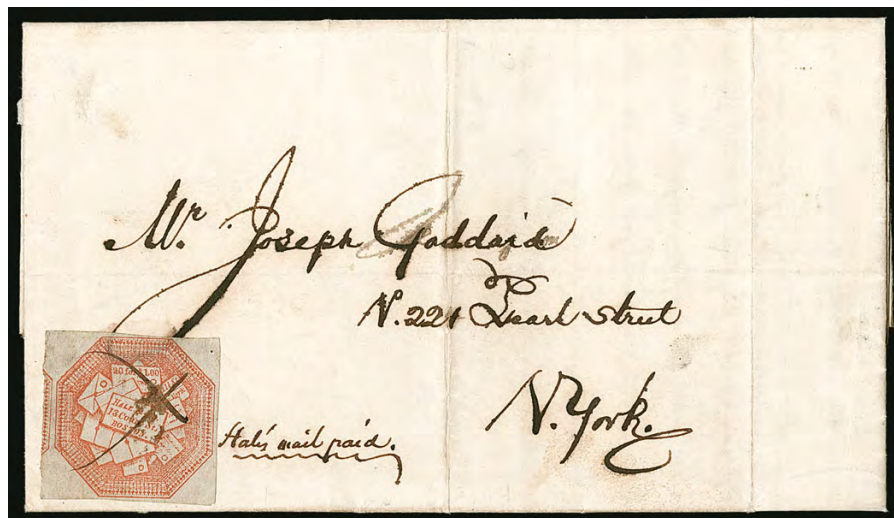 Mr. Joseph Goddard
N. 221 Pearl Street
N. York.
Hale's mail paid.
20 for $1.00
HALE & Co.
13 COURT
BOSTON